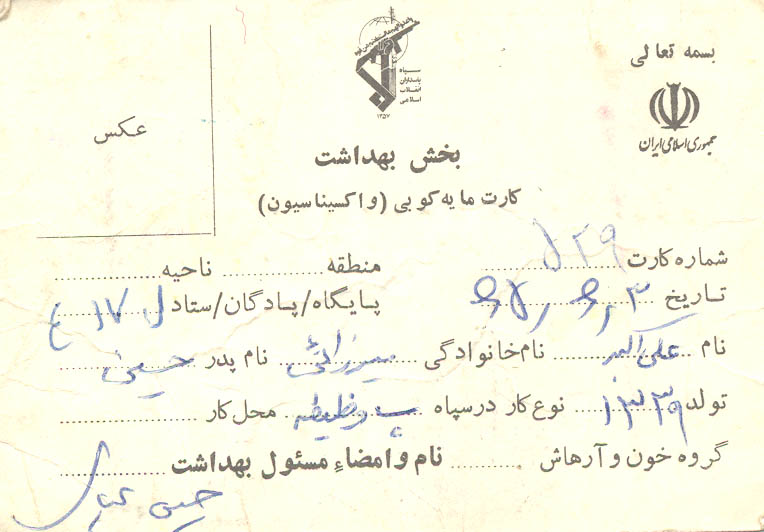 بسمه تعالی
جمهوری اسلامی ایران
سپاه
پاسداران
انقلاب
اسلامی
۱۳۵۷
عکس
بخش بهداشت
کارت مایه کوبی (واکسیناسیون)
شماره کارت ۲۹ ل منطقه ............ ناحیه ............
تاریخ پایگاه/پادگان/ستاد ل ۱۷ ع
نام علی اکبر نام خانوادگی میرزائی نام پدر حسین
تولد ۱۳۳۹ نوع کار در سپاه محل کار ............
گروه خون و آرهاش ............ نام و امضاء مسئول بهداشت ............
حسین